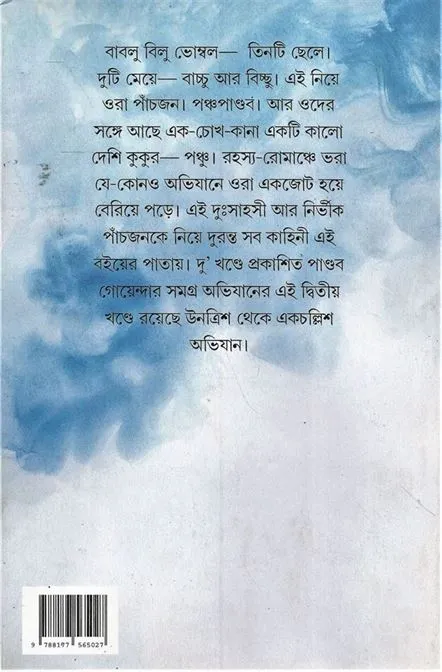 বাবলু বিলু ভোম্বল— তিনটি ছেলে।
দুটি মেয়ে— বাচ্চু আর বিচ্ছু। এই নিয়ে
ওরা পাঁচজন। পঞ্চপাণ্ডব। আর ওদের
সঙ্গে আছে এক-চোখ-কানা একটি কালো
দেশি কুকুর— পঞ্চু। রহস্য-রোমাঞ্চে ভরা
যে-কোনও অভিযানে ওরা একজোট হয়ে
বেরিয়ে পড়ে। এই দুঃসাহসী আর নির্ভীক
পাঁচজনকে নিয়ে দুরন্ত সব কাহিনী এই
বইয়ের পাতায়। দু’ খণ্ডে প্রকাশিত পাণ্ডব
গোয়েন্দার সমগ্র অভিযানের এই দ্বিতীয়
খণ্ডে রয়েছে উনত্রিশ থেকে একচল্লিশ
অভিযান।
9 788197 565027